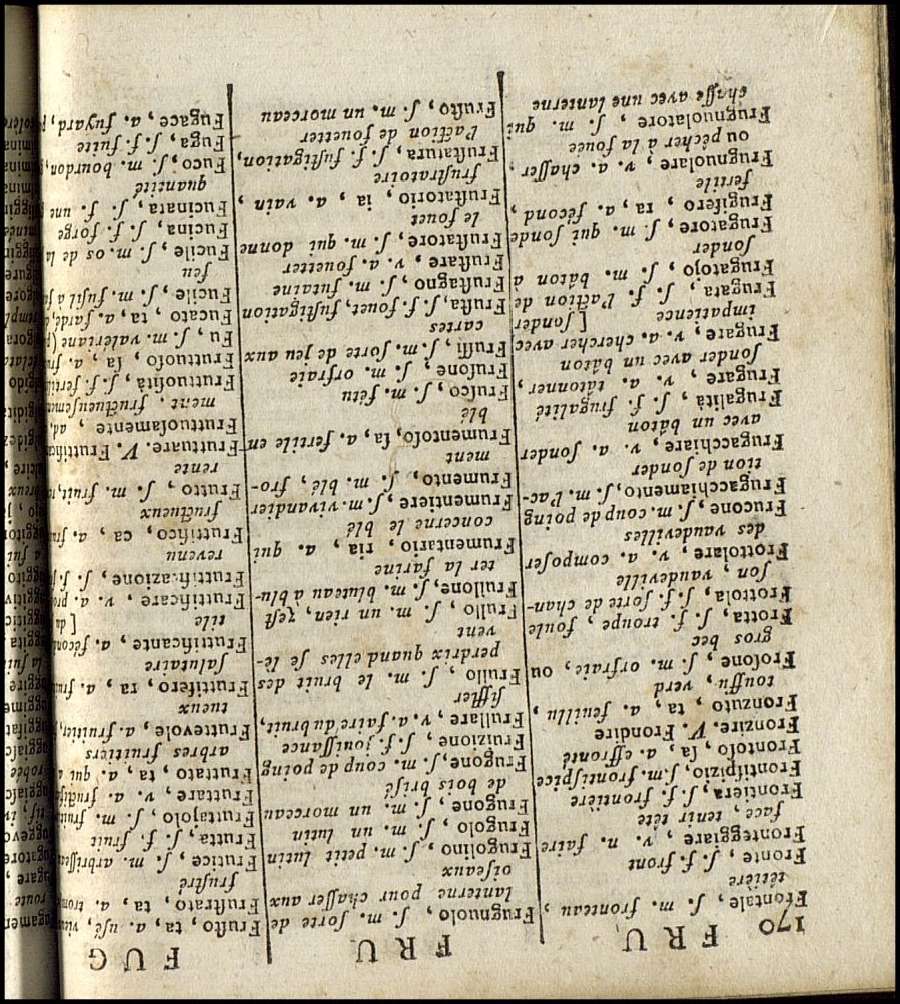 170 F R U
F R U
F U G
Frontale, ſ. m. fronteau,
têtière
Fronte, ſ. f. front
Fronteggiare, v. n. faire
face, tenir tête
Frontiera, ſ. f. frontière
Frontiſpizio, ſ. m. frontiſpice
Frontoſo, ſa, a. effronté
Fronzire. V. Frondire
Fronzuto, ta, a. feuillu,
touffu, verd
Froſone, ſ. m. orfraie, ou
gros bec
Frotta, ſ. f. troupe, foule
Frottola, ſ. f. ſorte de chan-
ſon, vaudeville
Frottolare, v. a. compoſer
des vaudevilles
Frucone, ſ. m. coup de poing
Frugacchiamento, ſ. m. l'ac-
tion de ſonder
Frugacchiare, v. a. ſonder
avec un bâton
Frugalità, ſ. f. frugalité
Frugare, v. a. tâtonner,
ſonder avec un bâton
Frugare, v. a. chercher avec
impatience [ſonder
Frugata, ſ. f. l'action de
Frugatojo, ſ. m. bâton à
ſonder
Frugatore, ſ. m. qui ſonde
Frugifero, ra, a. fécond,
fertile
Frugnuolare, v. a. chaſſer,
ou pêcher à la fouée
Frugnuolatore, ſ. m. qui
chaſſe avec une lanterne
Frugnuolo, ſ. m. ſorte de
lanterne pour chaſſer aux
oiſeaux
Frugolino, ſ. m. petit lutin
Frugolo, ſ. m. un lutin
Frugone, ſ. m. un morceau
de bois briſé
Frugone, ſ. m. coup de poing
Fruizione, ſ. f. jouiſſance
Frullare, v. a. faire du bruit,
ſiffler
Frullo, ſ. m. le bruit des
perdrix quand elles ſe lè-
vent
Frullo, ſ. m. un rien, zeſt
Frullone, ſ. m. bluteau à blu-
ter la farine
Frumentario, ria, a. qui
concerne le blé
Frumentiere, ſ. m. vivandier
Frumento, ſ. m. blé, fro-
ment
Frumentoſo, ſa, a. fertile en
blé
Fruſco, ſ. m. fétu
Fruſone, ſ. m. orfraie
Fruſſi, ſ. m. ſorte de jeu aux
cartes
Fruſta, ſ. f. fouet, fuſtigation
Fruſtagno, ſ. m. futaine
Fruſtare, v. a. fouetter
Fruſtatore, ſ. m. qui donne
le fouet
Fruſtatorio, ia, a. vain,
fruſtratoire
Fruſtatura, ſ. f. fuſtigation,
l'action de fouetter
Fruſto, ſ. m. un morceau
Fruſto, ta, a. uſé,
Fruſtrato, ta, a.
fruſtré
Frutice, ſ. m.
Frutta, ſ. f. fruit
Fruttajolo, ſ. m.
Fruttare, v. a.
Fruttato, ta, a. qui
arbres fruitiers
Fruttevole, a.
tueux
Fruttifero, ra, a.
ſalutaire
Fruttificante, a.
tile
Fruttificare, v. a.
Fruttificazione, ſ. f.
revenu
Fruttifico, ca, a.
fructueux
Frutto, ſ. m. fruit,
rente
Fruttuare. V.
Fruttuoſamente,
ment, fructueuſement
Fruttuoſità, ſ. f.
Fruttuoſo, ſa, a.
Fu, ſ. m. valériane
Fucato, ta, a. fardé,
Fucile, ſ. m. fuſil à
feu
Fucile, ſ. m. os de la
Fucina, ſ. f. forge
Fucinata, ſ. f. une
quantité
Fuco, ſ. m. bourdon,
Fuga, ſ. f. fuite
Fugace, a. fuyard,